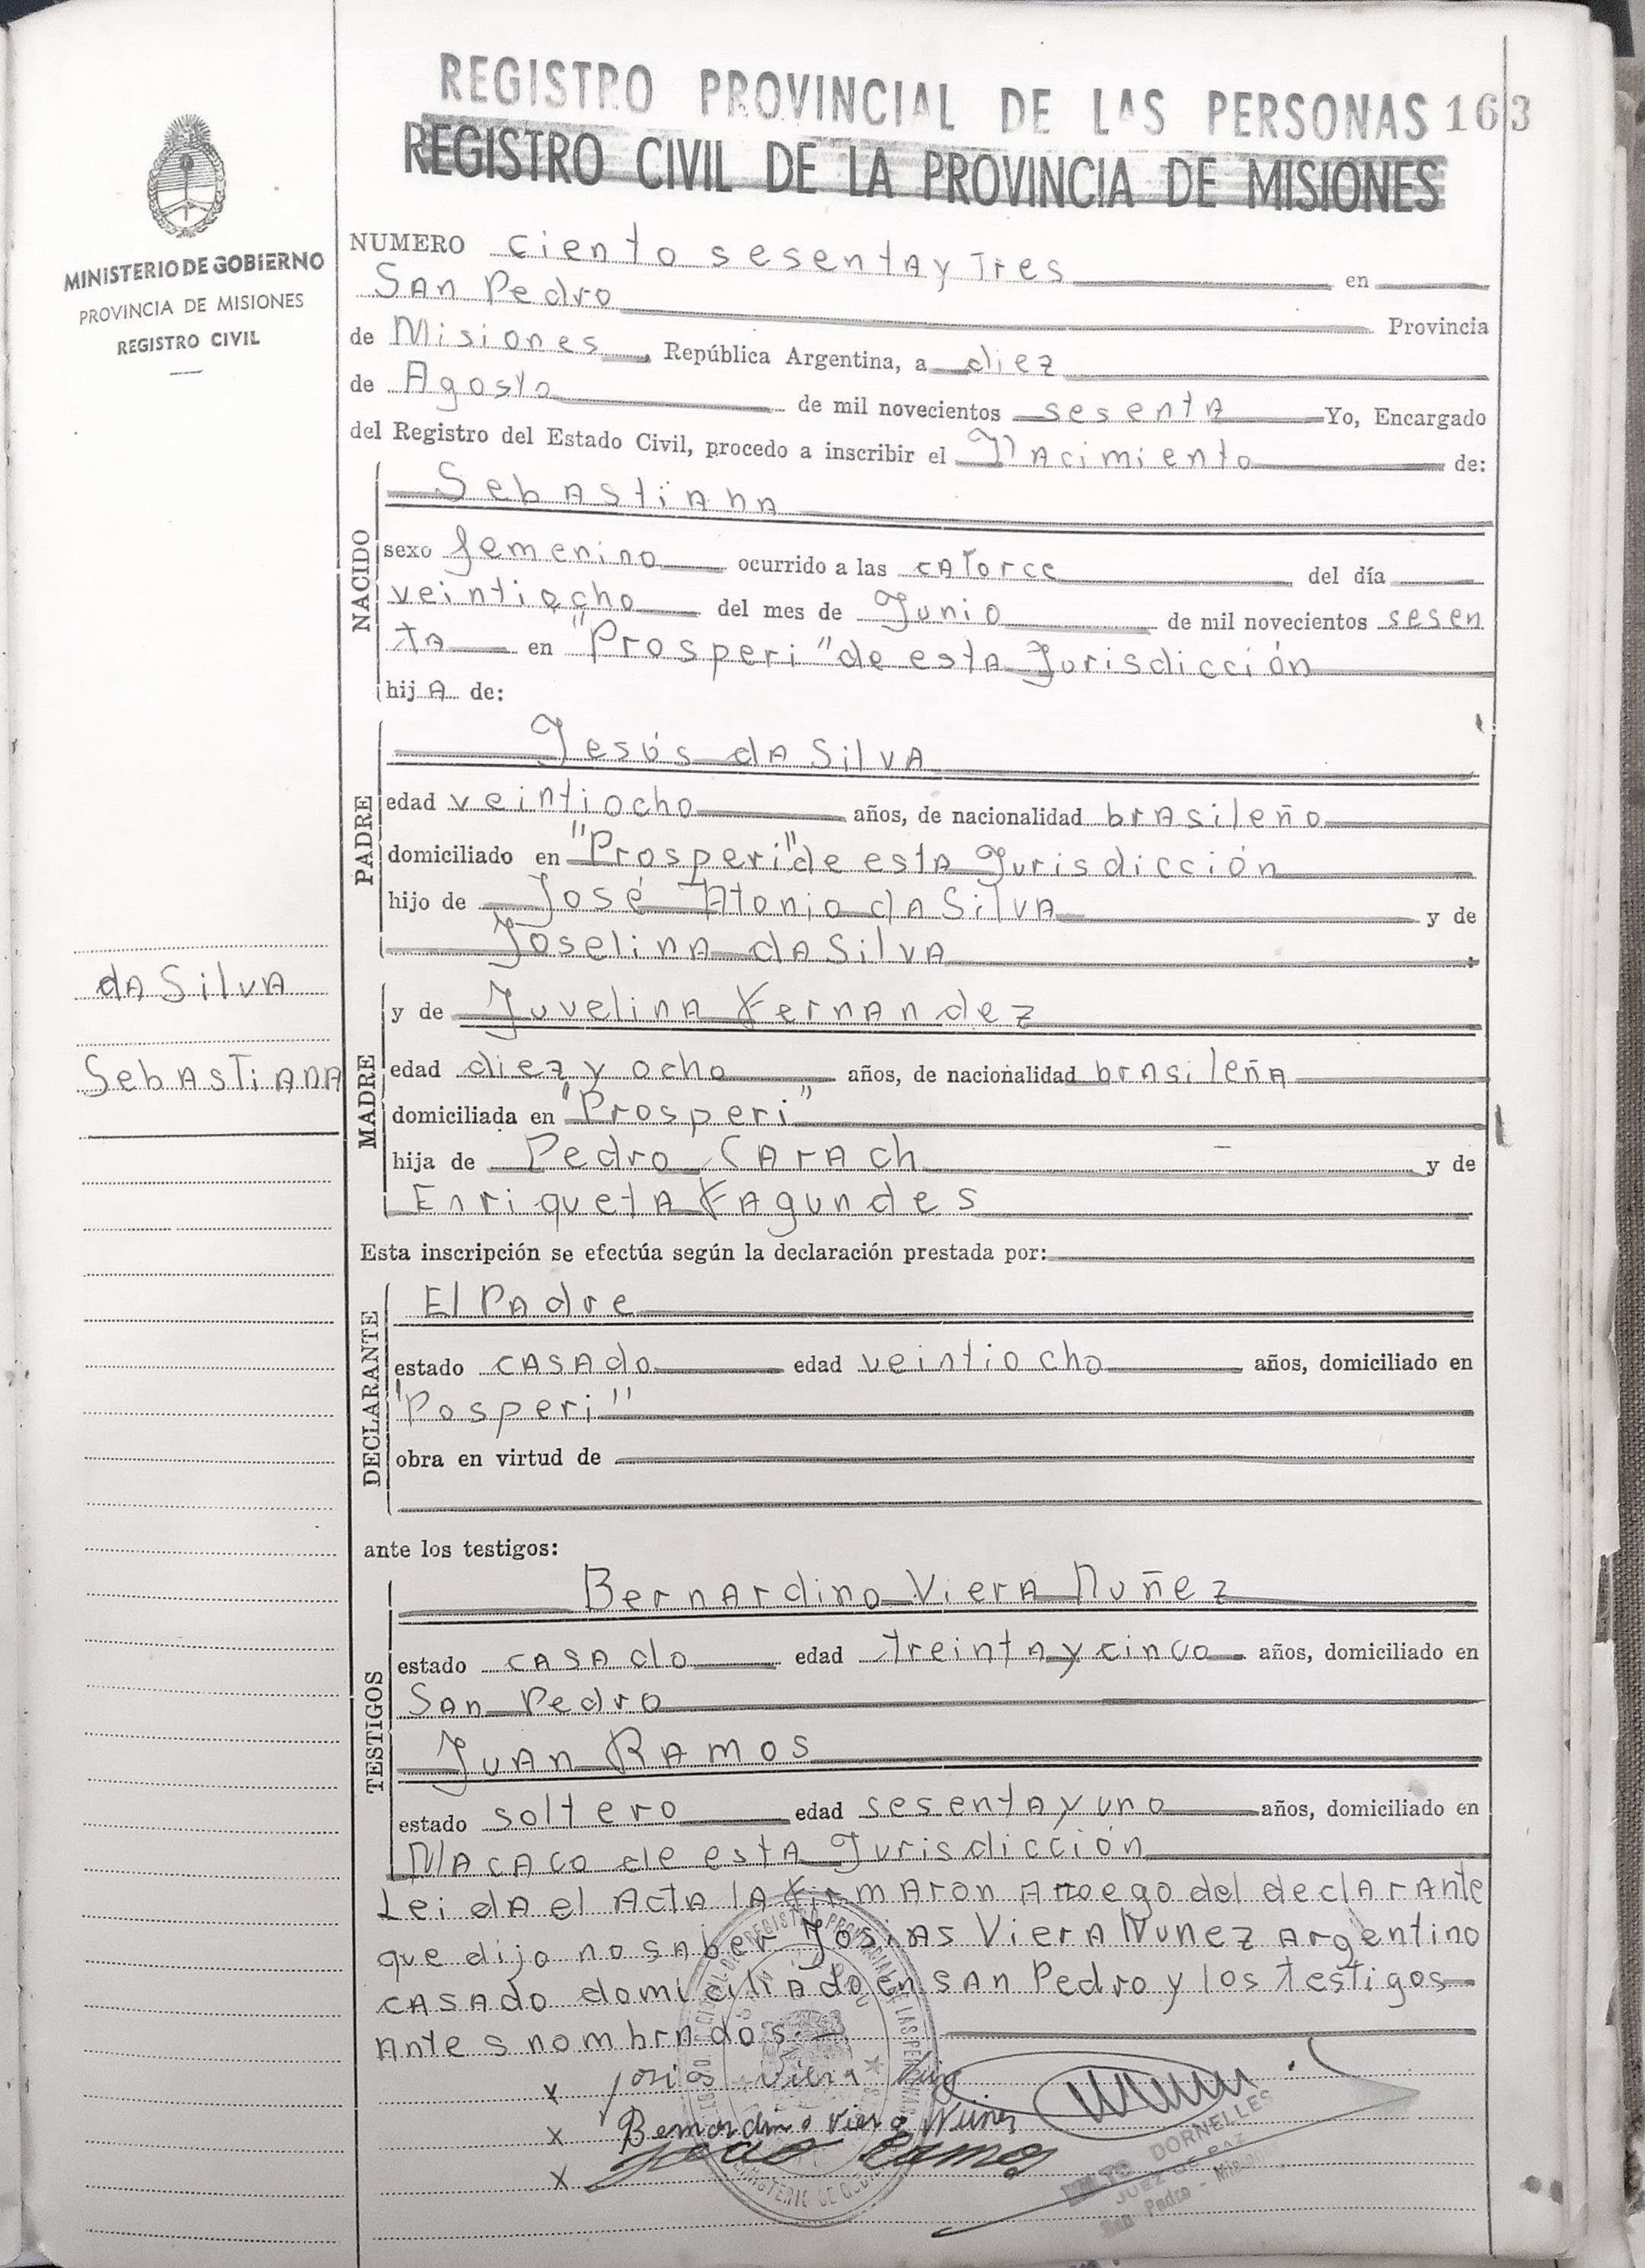 REGISTRO PROVINCIAL DE LAS PERSONAS 163
REGISTRO CIVIL DE LA PROVINCIA DE MISIONES
MINISTERIO DE GOBIERNO
PROVINCIA DE MISIONES
REGISTRO CIVIL
NUMERO ciento sesenta y Tres en
San Pedro Provincia
de Misiones, República Argentina, a diez
de Agosto de mil novecientos sesenta Yo, Encargado
del Registro del Estado Civil, procedo a inscribir el Nacimiento de:
NACIDO
Sebastiana
sexo femenino ocurrido a las catorce del día
veintiocho del mes de Junio de mil novecientos sesen
ta en "Prosperi" de esta Jurisdicción
hija de:
PADRE
Jesús da Silva
edad veintiocho años, de nacionalidad brasileño
domiciliado en "Prosperi" de esta Jurisdicción
hijo de José Atonio da Silva y de
Joselina da Silva
da Silva
Sebastiana
MADRE
y de Juvelina Fernandez
edad diez y ocho años, de nacionalidad brasileña
domiciliada en "Prosperi"
hija de Pedro Carach y de
Enriqueta Fagundes
Esta inscripción se efectúa según la declaración prestada por:
DECLARANTE
El Padre
estado casado edad veintiocho años, domiciliado en
"Posperi"
obra en virtud de
ante los testigos:
TESTIGOS
Bernardino Viera Nuñez
estado casado edad treinta y cinco años, domiciliado en
San Pedro
Juan Ramos
estado soltero edad sesenta y uno años, domiciliado en
Macaco de esta Jurisdicción
Leida el Acta la firmaron a ruego del declarante
que dijo no saber Josias Viera Nunez argentino
casado domiciliado en San Pedro y los testigos
antes nombrados.
x Josias Viera
x Bernardino Viera Nunes
x Joao Ramos
DORNELLES
JUEZ DE PAZ
San Pedro - Misiones